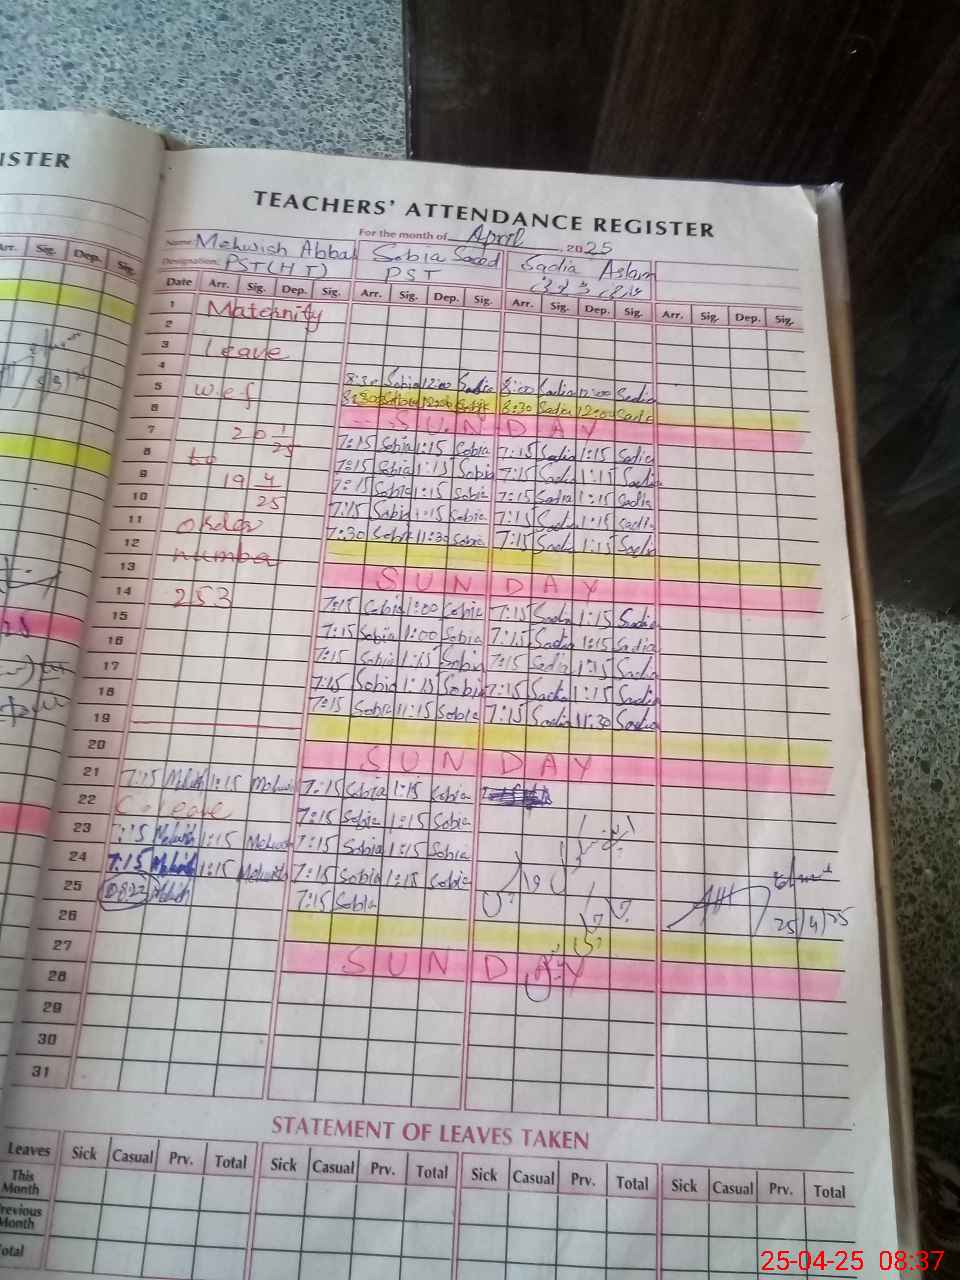 ISTER
Arr. Sig. Dep. Sig.
TEACHERS' ATTENDANCE REGISTER
For the month of April, 2025
Name: Mehwish Abbas Sobia Saeed Sadia Aslam
Designation: PST(HT) PST
Date Arr. Sig. Dep. Sig. Arr. Sig. Dep. Sig. Arr. Sig. Dep. Sig. Arr. Sig. Dep. Sig.
1 Maternity
2
3 Leave
4
5 w.e.f 8:30 Sobia 12:00 Sadia 8:00 Sadia 12:00 Sadia
6 8:30 Sobia 12:00 Sobia 8:30 Sadia 12:00 Sadia
7 SUNDAY
20 1/25
8 to 7:15 Sobia 1:15 Sobia 7:15 Sadia 1:15 Sadia
9 19 4/25 7:15 Sobia 1:15 Sobia 7:15 Sadia 1:15 Sadia
10 7:15 Sobia 1:15 Sobia 7:15 Sadia 1:15 Sadia
11 order 7:15 Sobia 1:15 Sobia 7:15 Sadia 1:15 Sadia
12 number 7:30 Sobia 11:30 Sobia 7:15 Sadia 1:15 Sadia
13
14 253 SUNDAY
15 7:15 Sobia 1:00 Sobia 7:15 Sadia 1:15 Sadia
16 7:15 Sobia 1:00 Sobia 7:15 Sadia 1:15 Sadia
17 7:15 Sobia 1:15 Sobia 7:15 Sadia 1:15 Sadia
18 7:15 Sobia 1:15 Sobia 7:15 Sadia 1:15 Sadia
19 7:15 Sobia 11:15 Sobia 7:15 Sadia 11:30 Sadia
20
21 SUNDAY
7:15 Mehwish 1:15 Mehwish 7:15 Sobia 1:15 Sobia
22 C. Leave 7:15 Sobia 1:15 Sobia
23 7:15 Mehwish 1:15 Mehwish 7:15 Sobia 1:15 Sobia
24 7:15 Mehwish 1:15 Mehwish 7:15 Sobia 1:15 Sobia
25 0822 Mehwish 7:15 Sobia
25/4/25
26
27
28 SUNDAY
29
30
31
STATEMENT OF LEAVES TAKEN
Leaves Sick Casual Prv. Total Sick Casual Prv. Total Sick Casual Prv. Total Sick Casual Prv. Total
This Month
Previous Month
Total
25-04-25 08:37